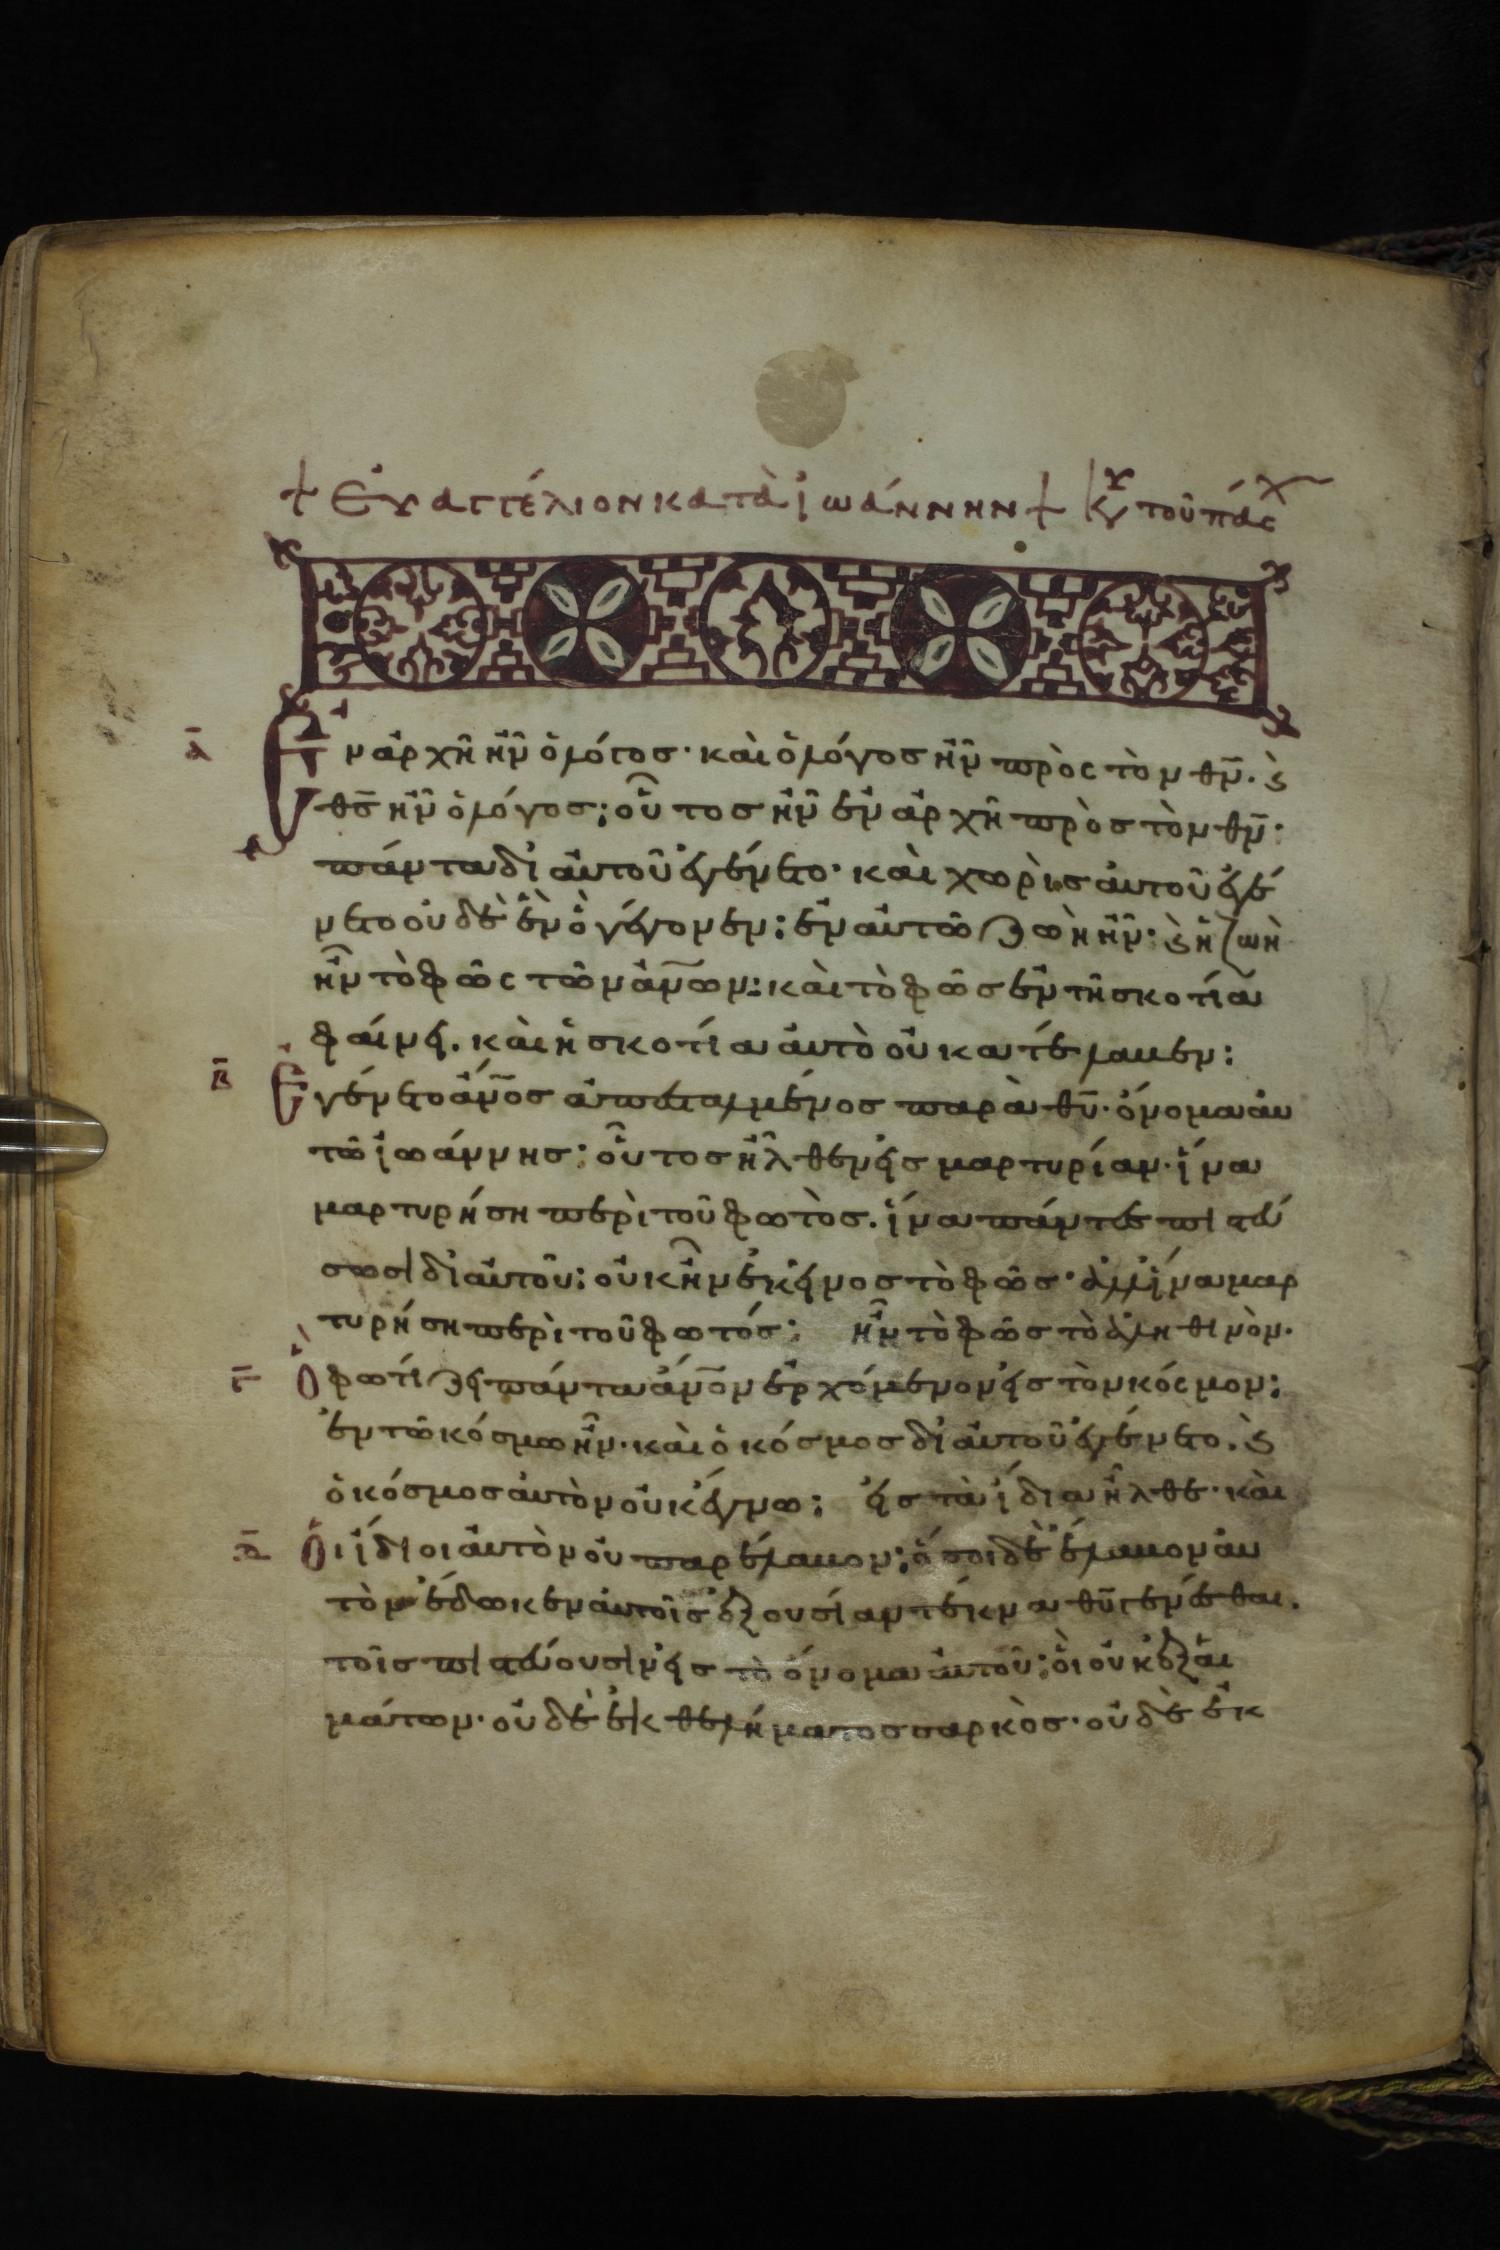 + Εὐαγγέλιον κατὰ ἰωάννην + κυ τοῦ πάσχ
α Ἐν ἀρχῆ ἦν ὁ λόγος· καὶ ὁ λόγος ἦν πρὸς τὸν θν̅. ϗ
θς̅ ἦν ὁ λόγος: οὗτος ἦν ἐν ἀρχῆ πρὸς τὸν θν̅·
πάντα δι αὐτοῦ ἐγένετο· καὶ χωρὶς αὐτοῦ ἐγέ
νετο οὐδὲ ἓν ὃ γέγονεν: ἐν αὐτῶ ζωὴ ἦν· ϗ ἡ ζωὴ
ἦν τὸ φῶς τῶν ἀν̅ων: καὶ τὸ φῶς ἐν τῆ σκοτία
φαίνει. καὶ ἡ σκοτία αὐτὸ οὐ κατέλαβεν:
β Ἐγένετο ἄν̅ος ἀπεσταλμένος παρὰ θυ̅· ὄνομα αὐ
τῶ ἰωάννης: οὗτος ἦλθεν εἰς μαρτυρίαν· ἵνα
μαρτυρήση περὶ τοῦ φωτὸς. ἵνα πάντες πιστεύ
σωσι δι αὐτοῦ: οὐκ ἦν ἐκεῖνος τὸ φῶς· ἀλλ ἵνα μαρ
τυρήση περὶ τοῦ φωτός: ἦν τὸ φῶς τὸ ἀληθινὸν.
γ Ὃ φωτίζει πάντα ἄν̅ον ἐρχόμενον εἰς τὸν κόσμον:
ἐν τῶ κόσμω ἦν· καὶ ὁ κόσμος δι αὐτοῦ ἐγένετο. ϗ
ὁ κόσμος αὐτὸν οὐκ ἔγνω: εἰς τὰ ἴδια ἦλθε· καὶ
δ Οἱ ἴδιοι αὐτὸν οὐ παρέλαβον: ὅσοι δὲ ἔλαβον αὐ
τὸν ἔδωκεν αὐτοῖς ἐξουσίαν τέκνα θυ̅ γενέσθαι.
τοῖς πιστεύουσιν εἰς τὸ ὄνομα αὐτοῦ: οἳ οὐκ ἐξ αἱ
μάτων· οὐδὲ ἐκ θελήματος σαρκὸς· οὐδὲ ἐκ